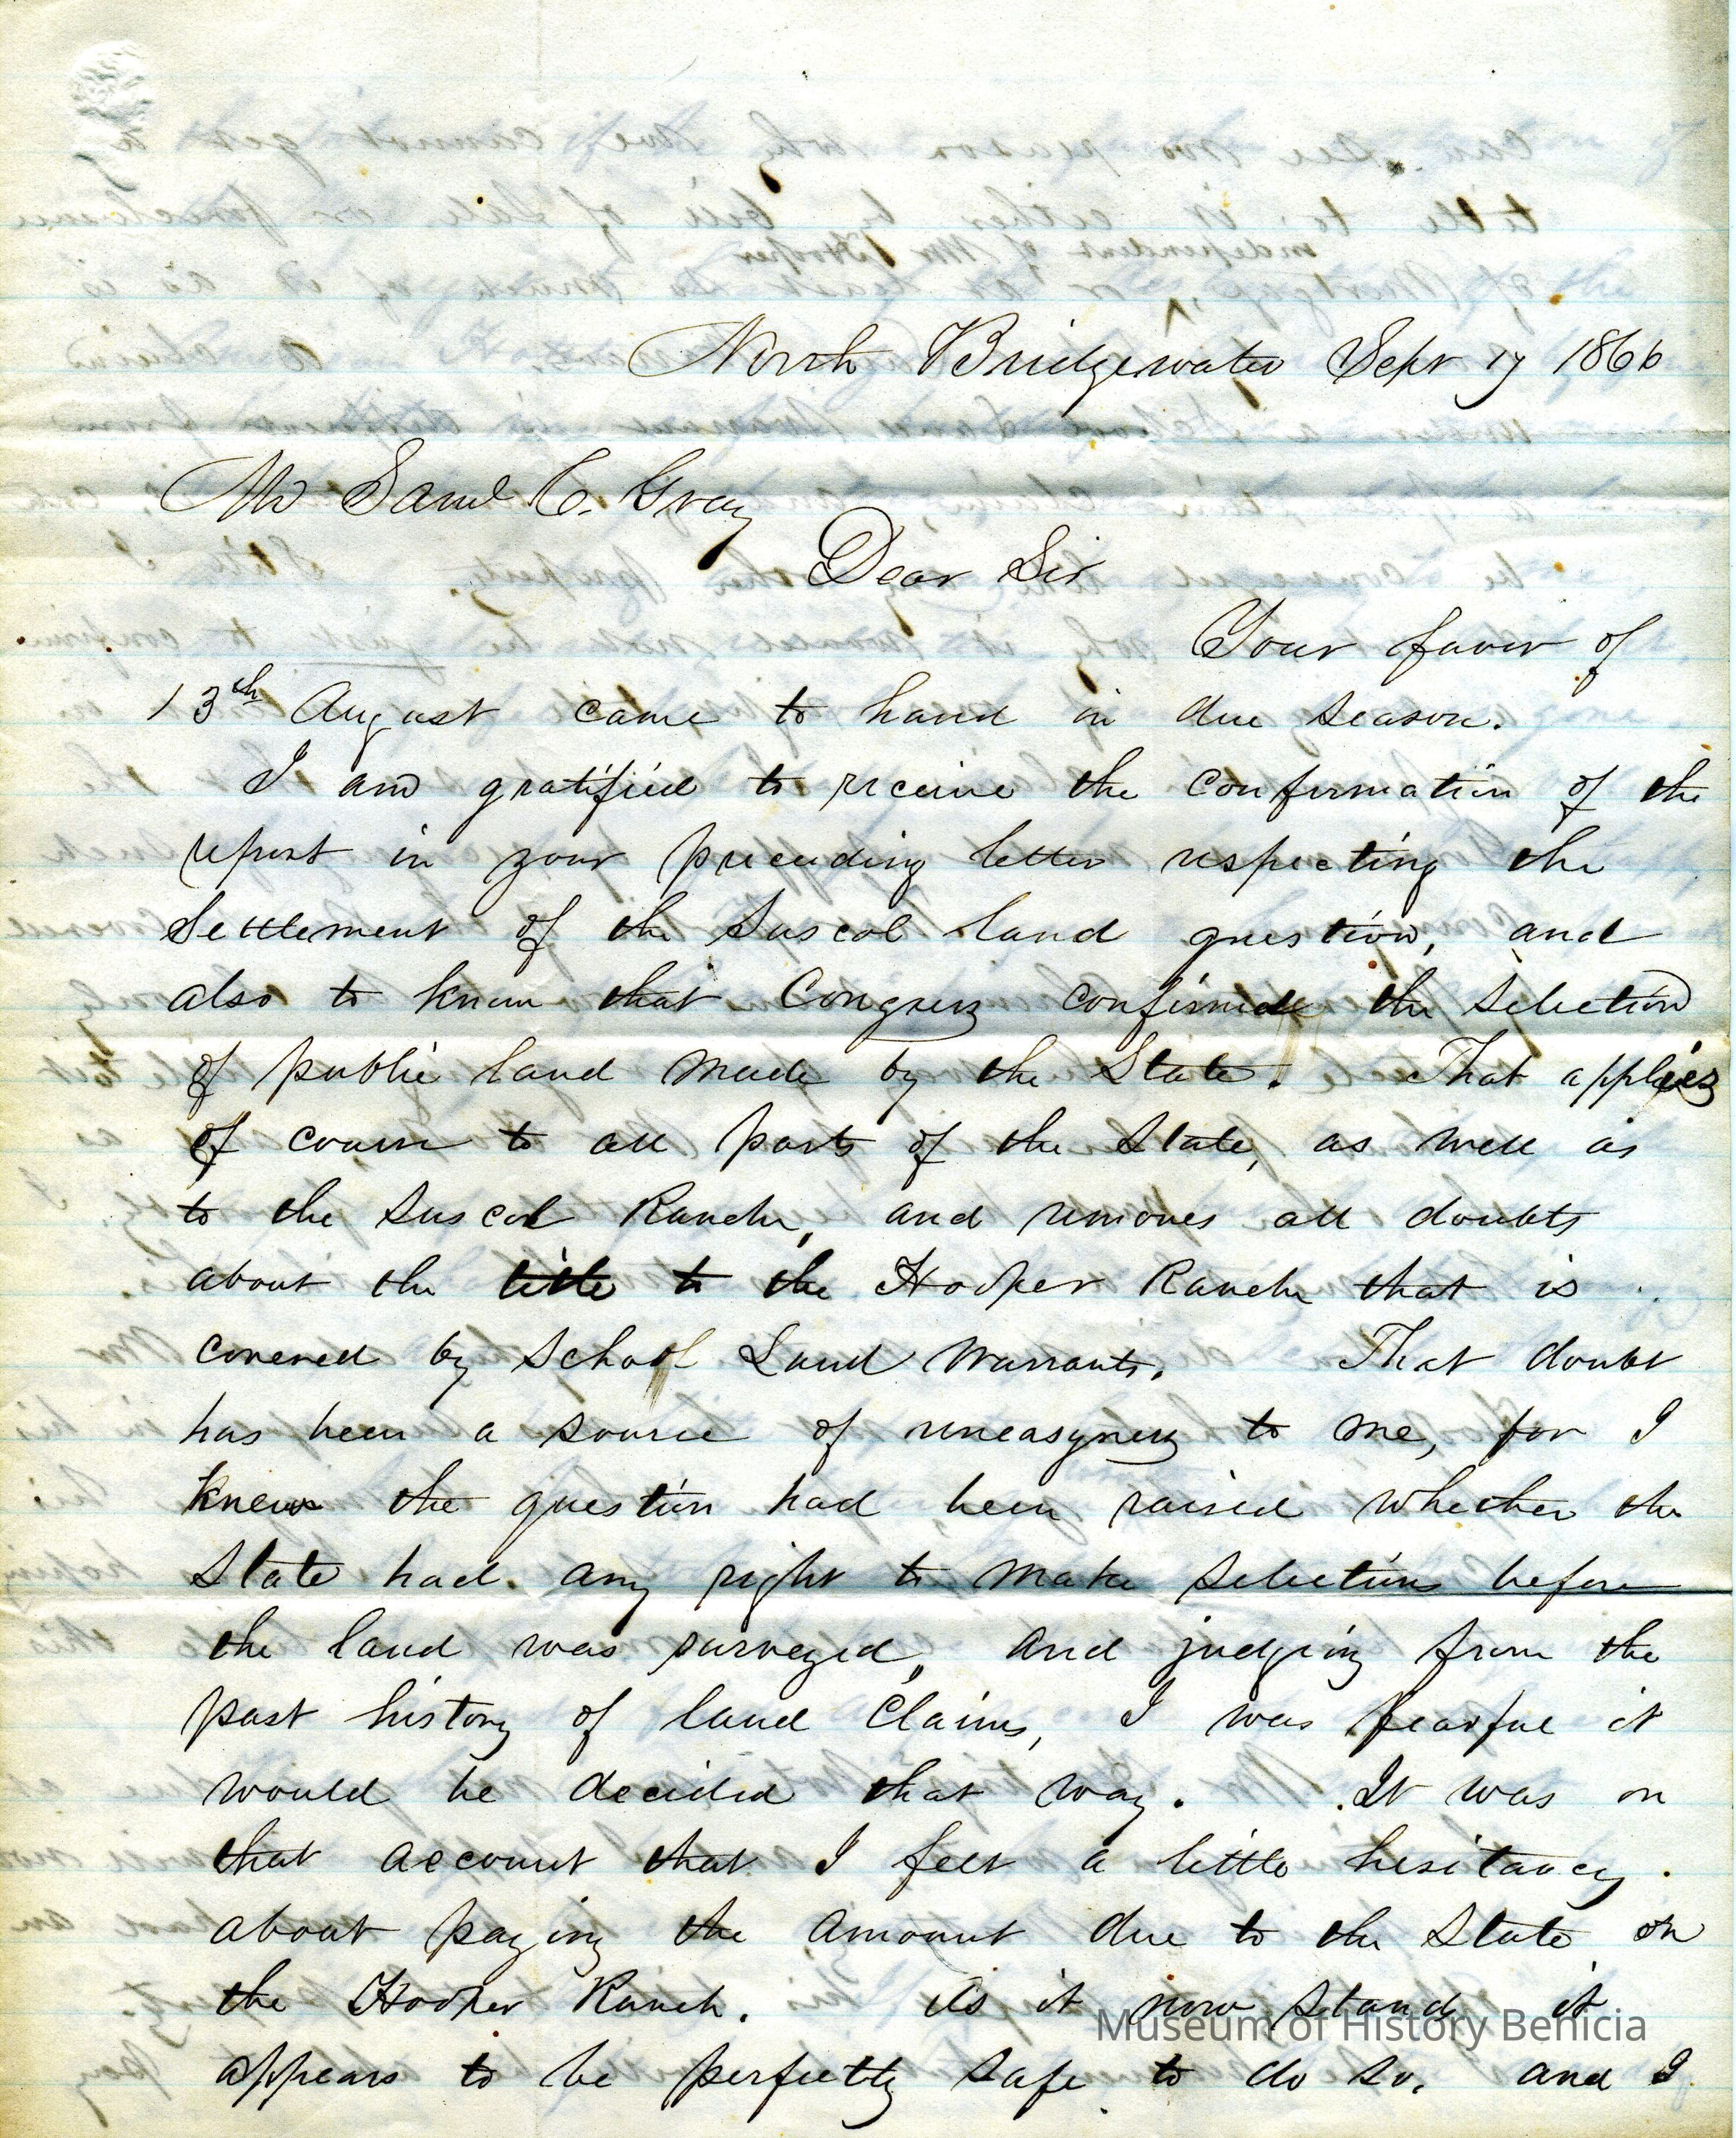 North Bridgewater Sept 17 1866
Mr Saml C. Gray
Dear Sir
Your favor of
13th August came to hand in due season.
I am gratified to receive the confirmation of the
report in your preceeding letter respecting the
settlement of the Suscol land question, and
also to know that Congress confirmed the selection
of public land made by the State. That applies
of course to all parts of the State, as well as
to the Suscol Ranch, and removes all doubts
about the title to the Hooper Ranch that is
covered by School Land Warrants. That doubt
has been a source of uneasyness to me, for I
knew the question had been raised whether the
State had any right to make selections before
the land was surveyed, and judging from the
past history of land Claims, I was fearful it
would be decided that way. It was on
that account that I felt a little hesitancy
about paying the amount due to the State on
the Hooper Ranch. As it now stands it
appears to be perfectly safe to do so. and I
Museum of History Benicia